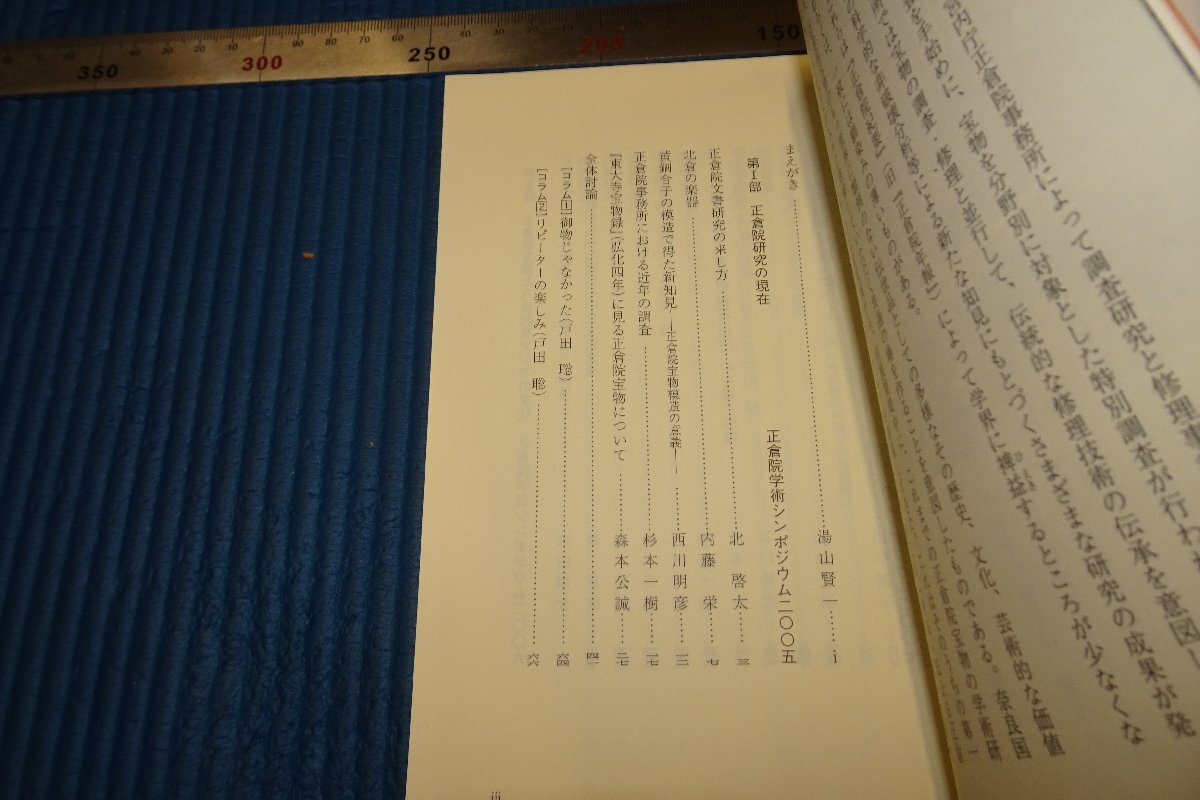 350
300
250
200
150
宮内庁正倉院事務所によって調査研究と修理事
を手始めに、宝物を分野別に対象とした特別調査が行われ
では宝物の調査・修理と並行して、伝統的な修理技術の伝承を意図し
科学的な非破壊分析等による新たな知見にもとづくさまざまな研究の成果が発
『正倉院紀要』(旧『正倉院年報』)によって学界に裨益するところが少なくな
いものがある。
としての多様なその歴史、文化、芸術的な価値
ことを意図したものである。奈良国
これまでの正倉院宝物の学術研
まえがき……湯山賢一……i
第Ⅰ部 正倉院研究の現在 正倉院学術シンポジウム二〇〇五
正倉院文書研究の来し方……北 啓太……三
北倉の楽器……内藤 栄……七
黄銅合子の模造で得た新知見――正倉院宝物模造の意義――……西川明彦……一二
正倉院事務所における近年の調査……杉本一樹……一七
『東大寺宝物録』(弘化四年)に見る正倉院宝物について……森本公誠……二七
全体討論……四一
[コラム1]御物じゃなかった(戸田 聡)……六四
[コラム2]リピーターの楽しみ(戸田 聡)……六六
iii